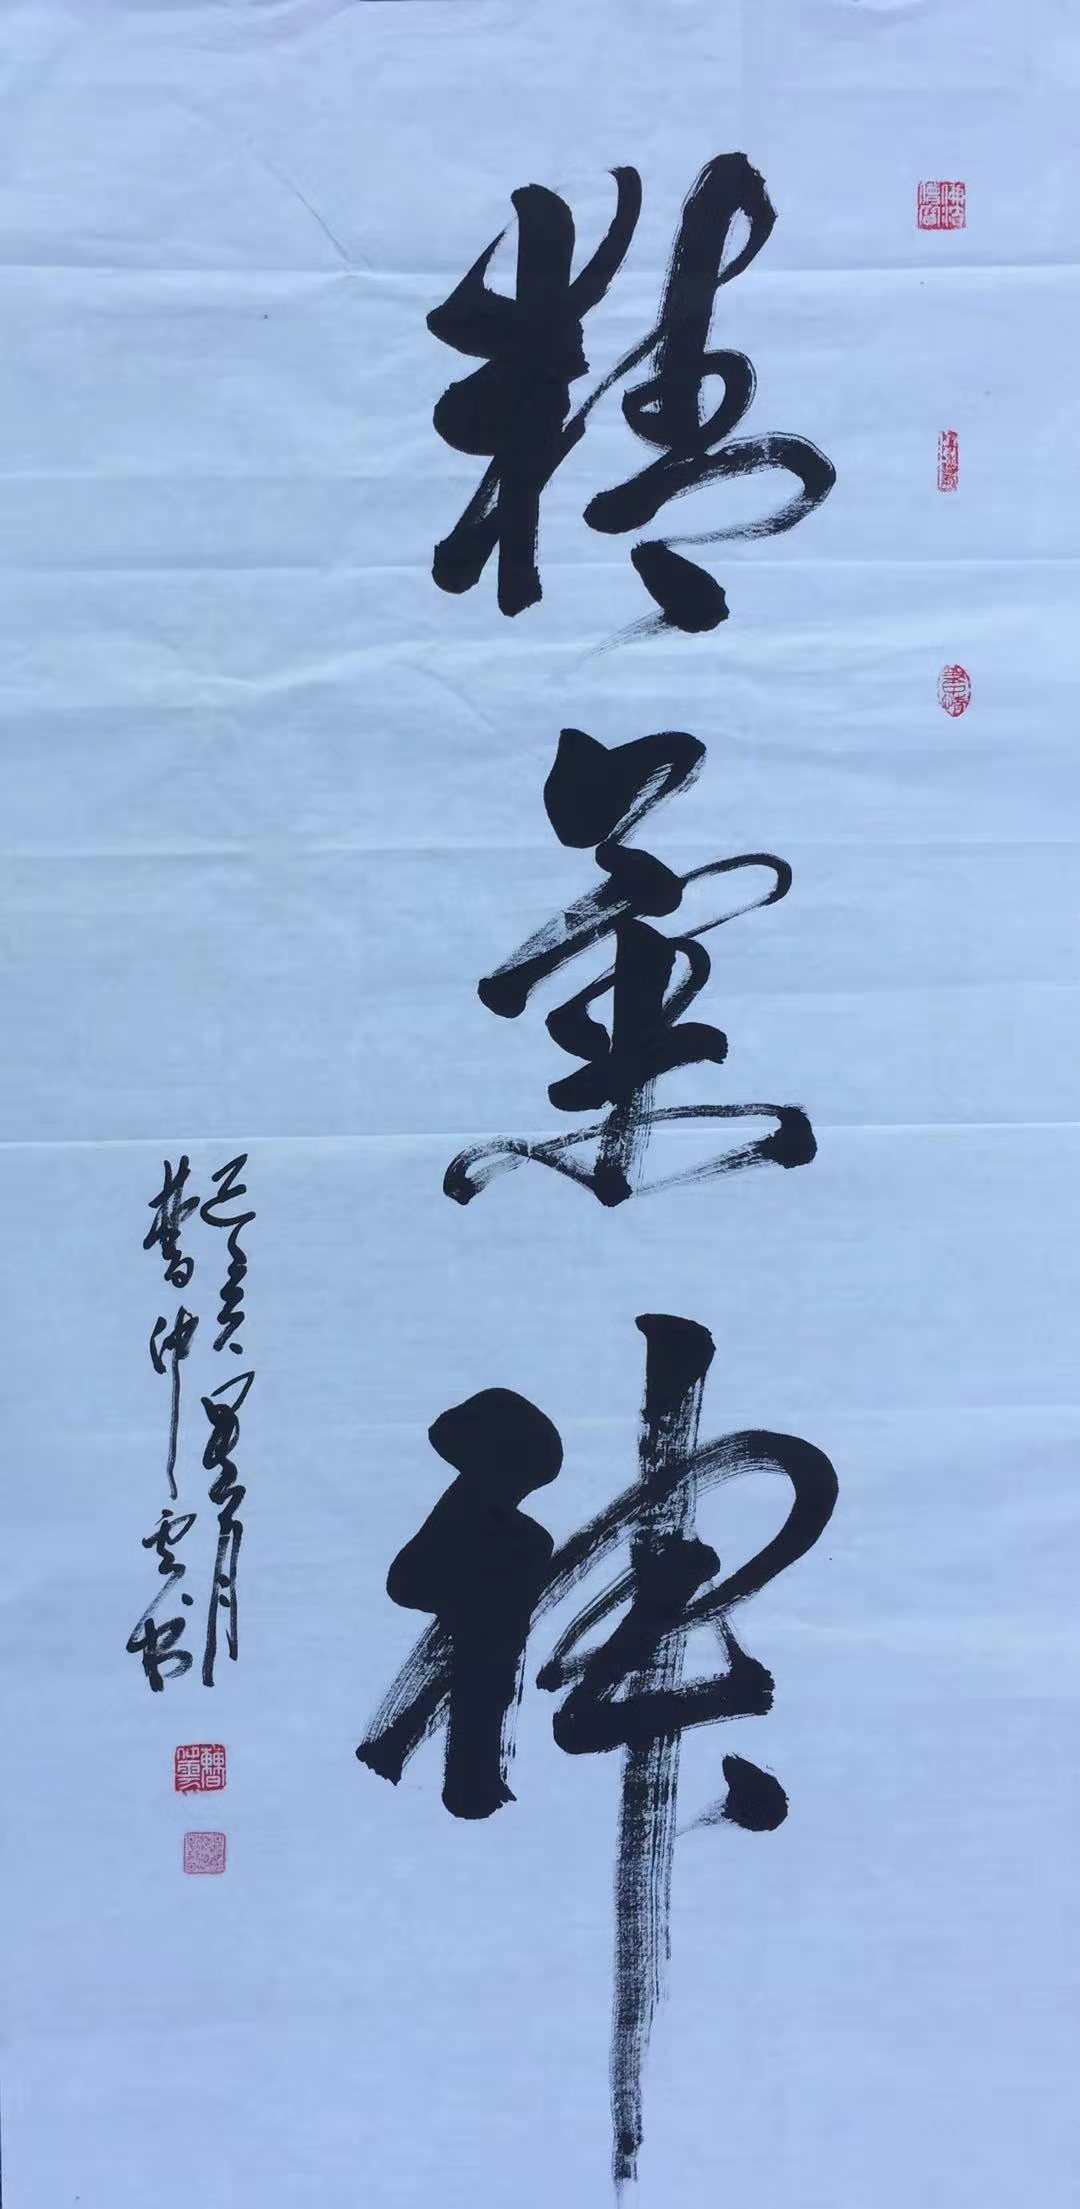 精氣神
己亥夏月
曹仲云书